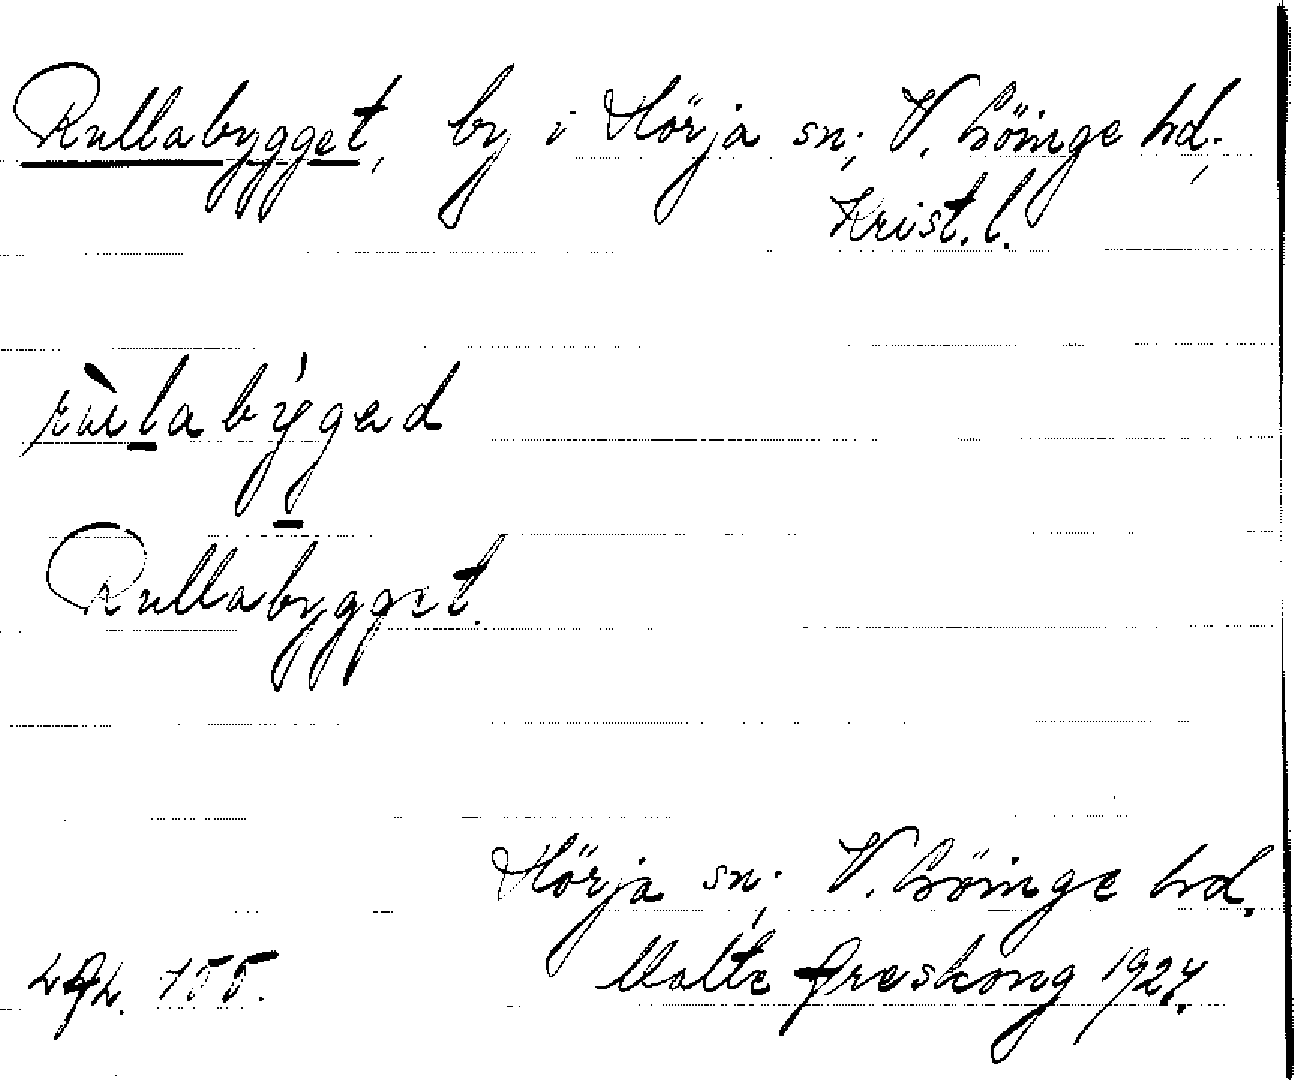 Rullabygget, by i Hörja sn; V. Göinge hd;
Krist. l.
rùlabýgad
Rullabygget.
Hörja sn; V. Göinge hd.
Malte Areskoug 1927.
155.